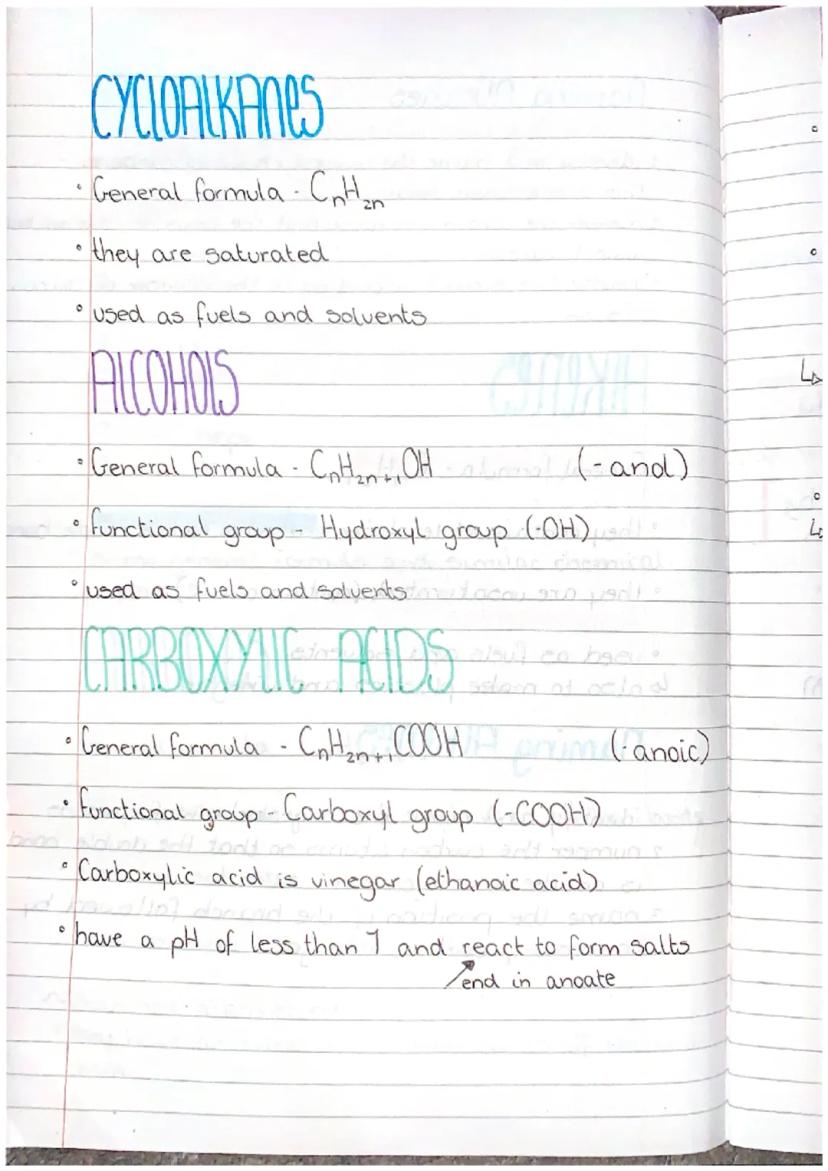 CYCLOALKANES
• General formula - CₙH₂ₙ
• they are saturated
• used as fuels and solvents
ALCOHOLS
• General formula - CₙH₂ₙ₊₁OH (-anol)
• functional group - Hydroxyl group (-OH)
• used as fuels and solvents
CARBOXYLIC ACIDS
• General formula - CₙH₂ₙ₊₁COOH (-anoic)
• functional group - Carboxyl group (-COOH)
• Carboxylic acid is vinegar (ethanoic acid)
• have a pH of less than 7 and react to form salts
↗end in anoate